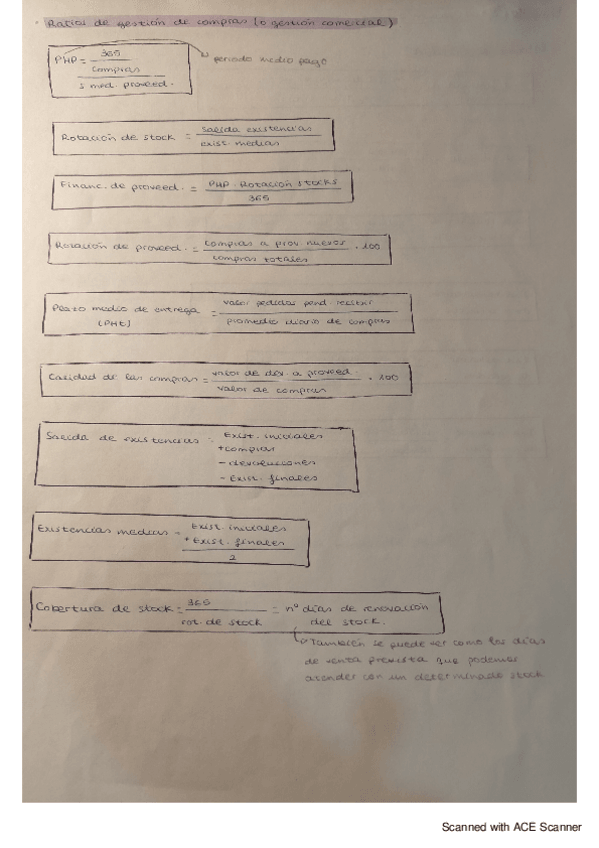 Ratios de gestión de compras (o gestión comercial)
PMP = 365
compras
s. med. proveed.
periodo medio pago
Rotación de stock = salida existencias
exist. medias
Financ. de proveed. = PMP · Rotación stocks
365
Rotación de proveed. = compras a prov nuevos · 100
compras totales
Plazo medio de entrega = valor pedidos pend. recibir
(PME) promedio diario de compras
Calidad de las compras = valor de dev. a proveed. · 100
valor de compras
Salida de existencias = Exist. iniciales
+ compras
- devoluciones
- Exist. finales
Existencias medias = Exist. iniciales
+ Exist. finales
2
Cobertura de stock = 365 = nº días de renovación
rot. de stock del stock.
También se puede ver como los días
de venta prevista que podemos
atender con un determinado stock.
Scanned with ACE Scanner